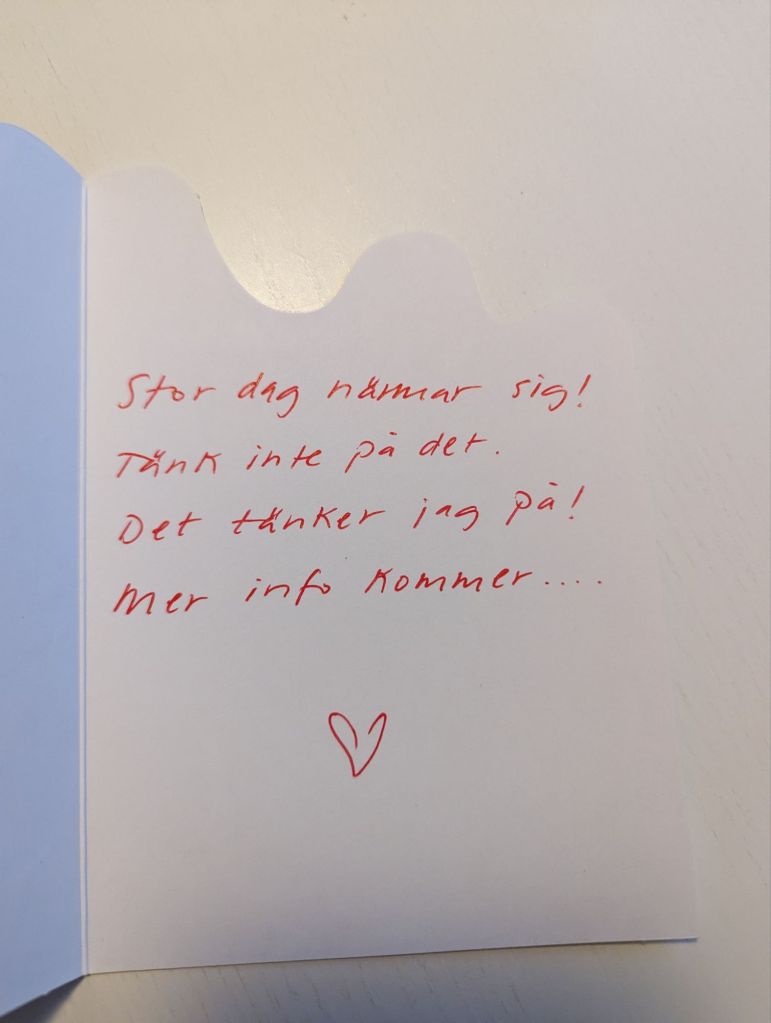 Stor dag närmar sig!
Tänk inte på det.
Det tänker jag på!
Mer info kommer....